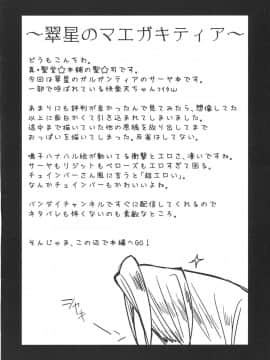 ～翠星のマエガキティア～
どうもこんちわ。
真・聖堂☆本舗の聖☆司です。
今回は翠星のガルガンティアのサーヤ本です。
一部で呼ばれている快楽天ちゃんｺｲﾂｗ
あまりにも評判が良かったんで見てみたら、想像してた
以上に面白かくて引き込まれてしまいました。
途中まで描いていた他の原稿を放り出してまで
おっぱいを描いてしまった。反省はしてない。
鳴子ハナハル絵が動いてる衝撃とエロさ、凄いですね。
サーヤもリジットもベローズもエロすぎて困る。
チェインバーさん風に言うと「超エロい」
なんかチェインバーもかわいいよね。
バンダイチャンネルですぐに配信してくれるので
ネタバレも怖くないのも素敵なところ。
そんじゃま、この辺で本編へGO！
ジャキ